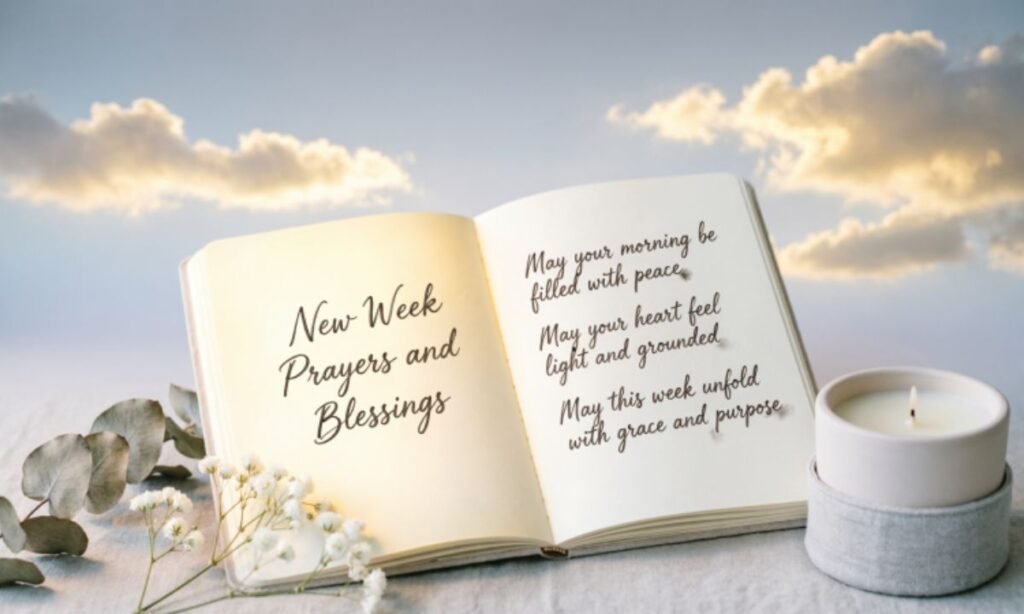 New Week
Prayers and
Blessings
May your morning be
filled with peace
May your heart feel
light and grounded
May this week unfold
with grace and purpose